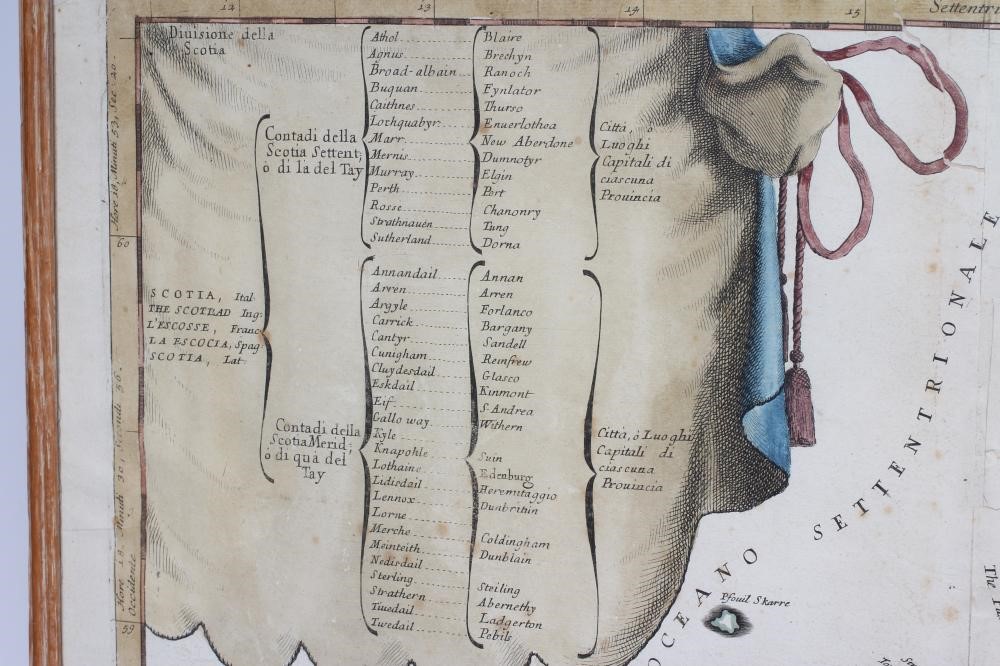 12 13 14 15 Settentri
Diuisione della
Scotia
SCOTIA, Ital.
THE SCOTLAD Ing:
L'ESCOSSE, Franc
LA ESCOCIA, Spag
SCOTIA, Lat
Contadi della
Scotia Settent;
ò di la del Tay
Athol Blaire
Agnus Brechyn
Broad-albain Ranoch
Buquan Fynlator
Caithnes Thurso
Lochquabyr Enuerlothea
Marr New Aberdone
Mernis Dumnotyr
Murray Elgin
Perth Pert
Rosse Chanonry
Strathnauèn Tung
Sutherland Dorna
Città, ò
Luoghi
Capitali di
ciascuna
Prouincia
Contadi della
Scotia Merid;
ò di quà del
Tay
Annandail Annan
Arren Arren
Argyle Forlanco
Carrick Bargany
Cantyr Sandell
Cunigham Reinfrew
Cluydesdail Glasco
Eskdail Kinmont
Eif S. Andrea
Gallo way Withern
Kyle
Knapohle Suin
Lothaine Edenburg
Lidisdail Heremitaggio
Lennox Dunbrittin
Lorne
Merche Coldingham
Meinteith Dunblain
Nedisdail
Sterling Sterling
Strathern Abernethy
Tiuedail Ladgerton
Twedail Pebils
Città, ò Luoghi
Capitali di
ciascuna
Prouincia
60
59
Occidente
OCEANO SETTENTRIONALE
Pfouil Skarre